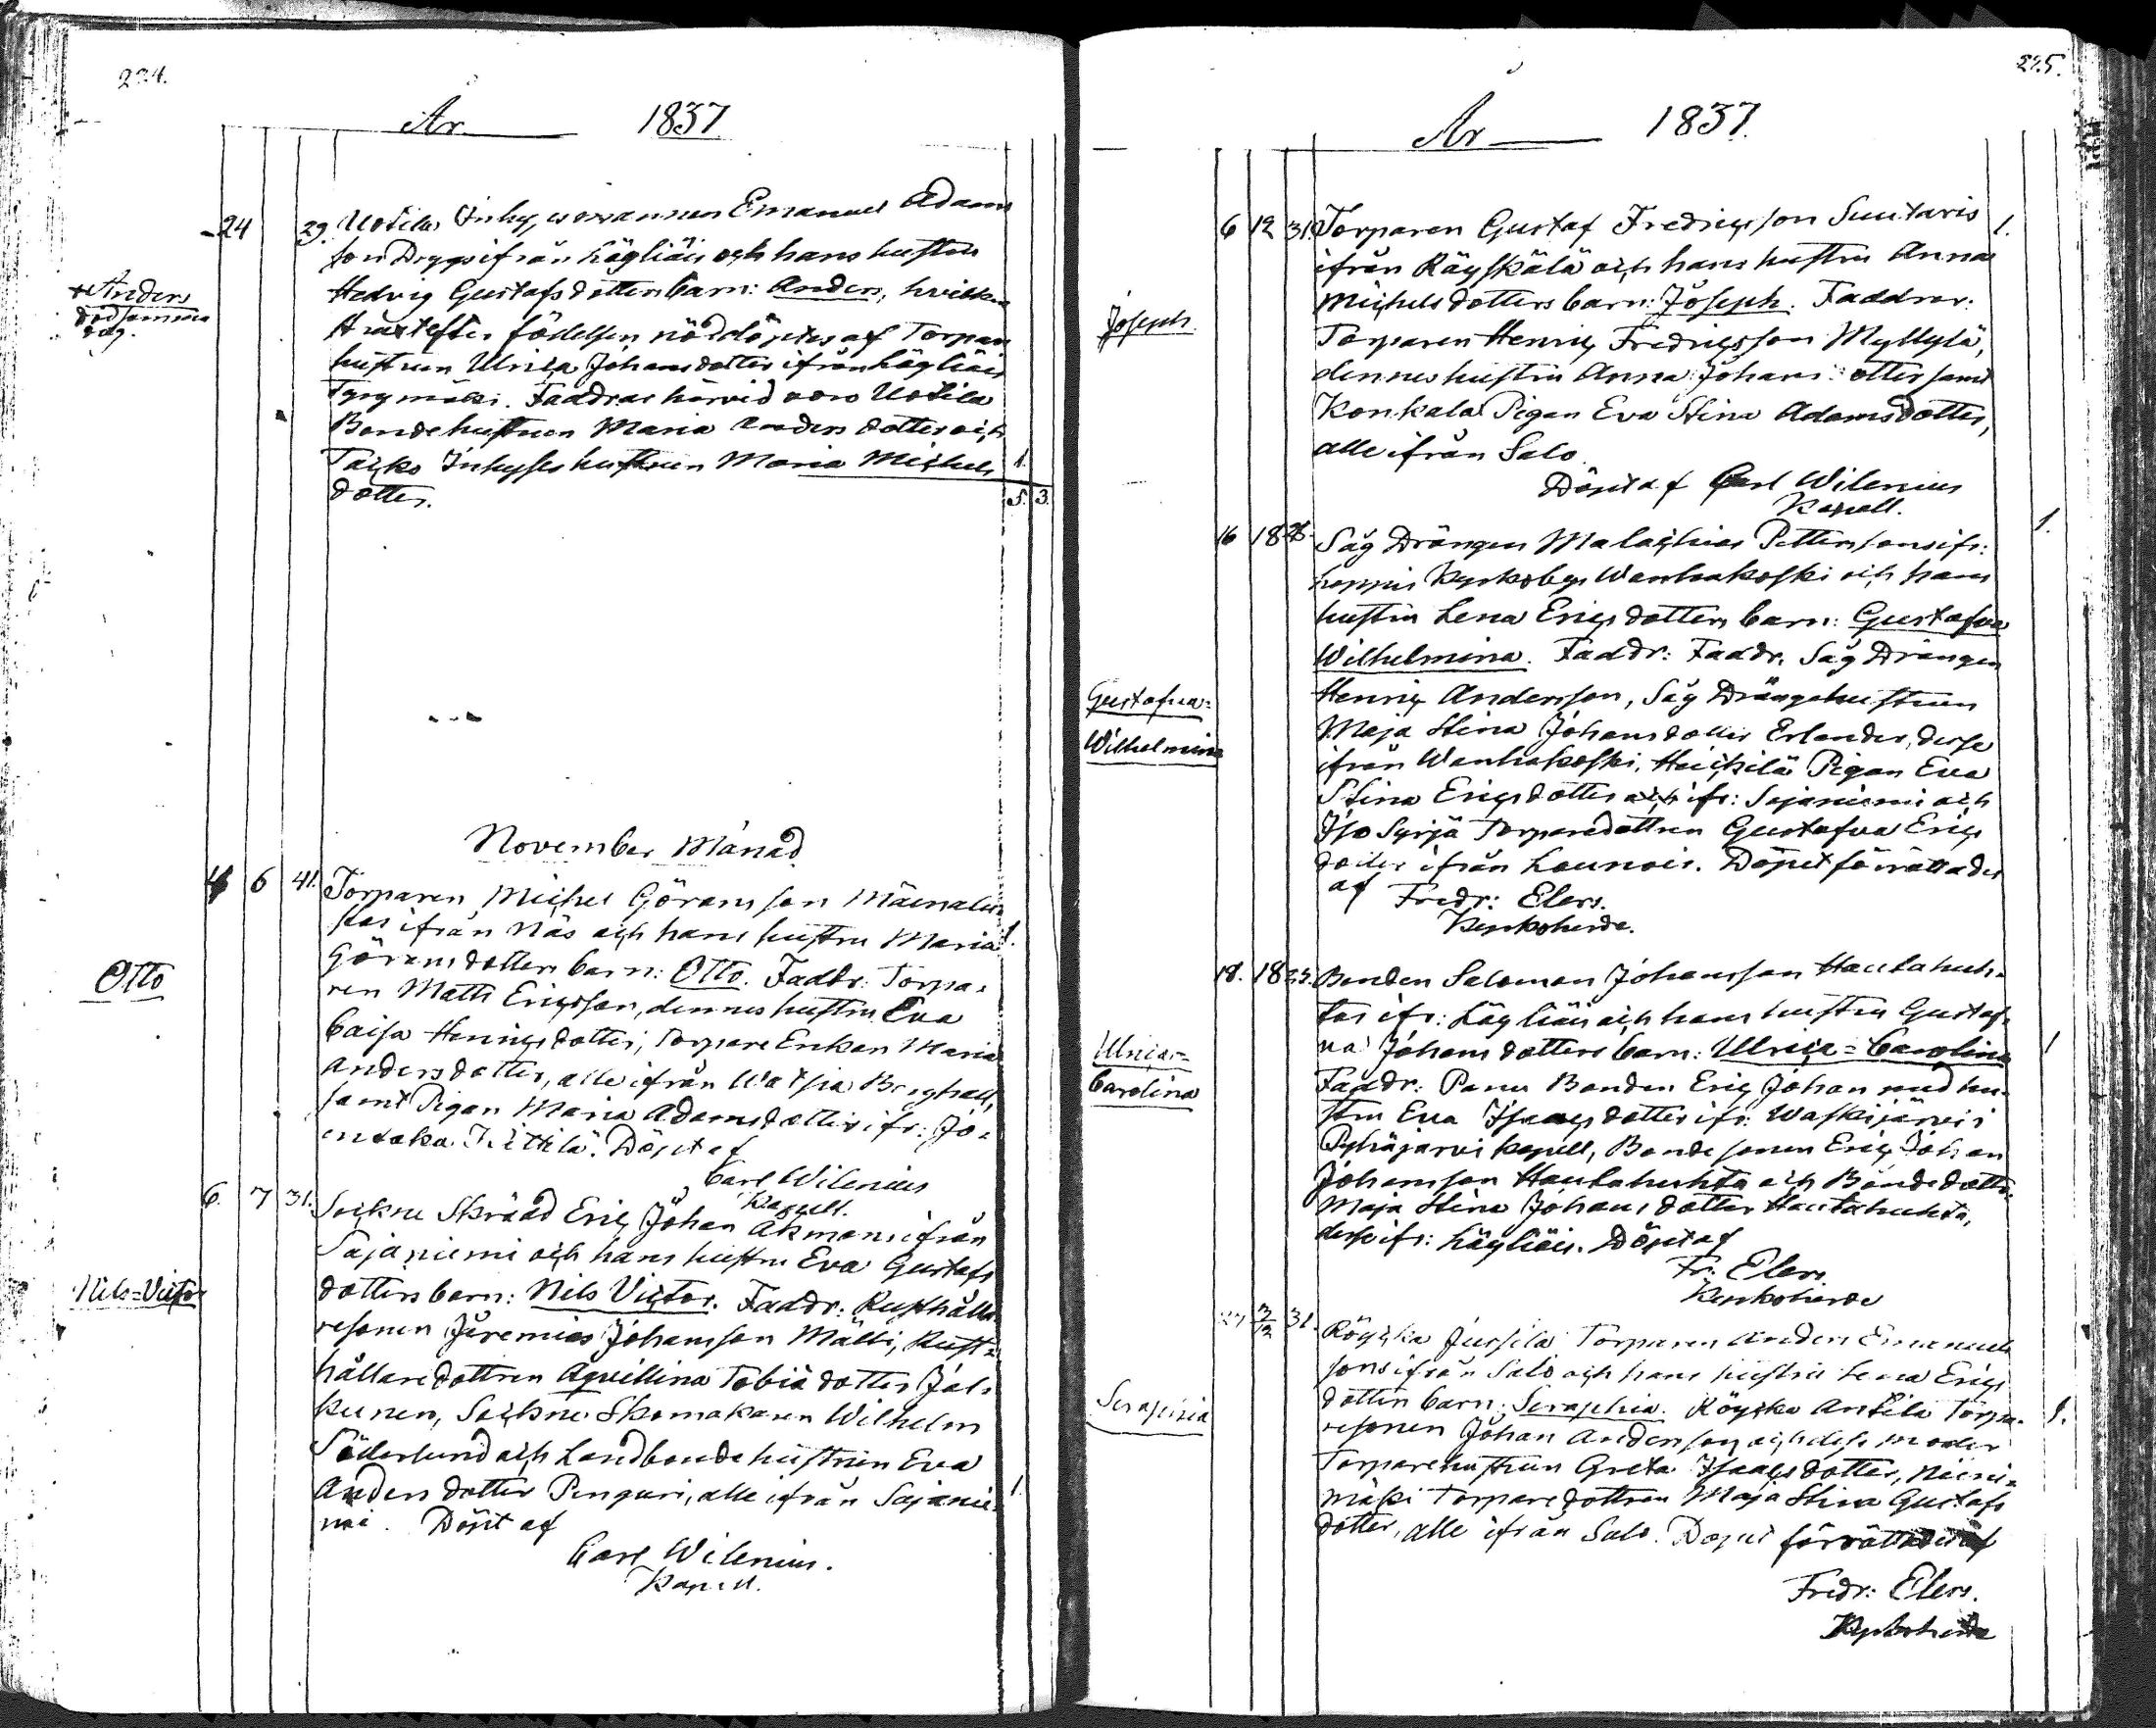 224.
År 1837
24 29. Uotila Inhysesmannen Emanuel Adams
son ifrån Lägliäis och hans hustru
Hedvig Gustafsdotters barn: Anders, hvilken
+ Anders
död samma
dag.
straxt efter födelsen nöddöptes af Torpare
hustrun Ulrica Johansdotter ifrån Lägliäis
Faddrar härvid voro Uotila
Bondehustrun Maria Andersdotter och
Inhyses hustrun Maria Michels 1.
dotter. 5. 3.
November Månad
4 6 41. Torparen Michel Göransson
ifrån Näs och hans hustru Maria 1.
Göransdotters barn: Otto. Faddr: Torpa-
Otto
ren Matts Ericsson, dennes hustru Eva
Caisa Henricsdotter, Torpare Enkan Maria
Andersdotter, alle ifrån
samt Pigan Maria Adamsdotter ifr: Jo-
ensaka Döpt af
Carl Wilenius
Kapell.
6. 7 31. Sockne Skräd. Eric Johan Åkmans ifrån
Sajaniemi och hans hustru Eva Gustafs
Nils=Victor
dotters barn: Nils Victor. Faddr: Rusthålla-
resonen Jeremias Johansson Mälli, Rust-
hållaredottren Aqvillina Tobiædotter Jal-
kunen, Sockne Skomakaren Wilhelm
Söderlund och Landbondehustrun Eva
Andersdotter Penguri, alle ifrån Sajanie- 1.
mi. Döpt af
Carl Wilenius.
Kapell.
225.
År 1837.
6 12 31. Torparen Gustaf Fredricsson Suutaris 1.
ifrån Räyskälä och hans hustru Anna
Michelsdotters barn: Joseph. Faddrar:
Joseph
Torparen Henric Fredricsson Myllylä,
dennes hustru Anna Johansdotter samt
Konkala Pigan Eva Stina Adamsdotter,
alle ifrån Salo
Döpt af Carl Wilenius
Kapell.
16 18 Såg Drängen Malachias Pettersons ifr: 1.
Loppis Kyrkoby Wanhakoski och hans
hustru Lena Ericsdotters barn: Gustafva
Wilhelmina. Faddr: Faddr. Såg Drängen
Gustafva=
Wilhelmina
Henric Andersson, Såg Drängehustrun
Maja Stina Johansdotter Erlander, desse
ifrån Wanhakoski, Heickilä Pigan Eva
Stina Ericsdotter ifr: Sajaniemi och
Iso Syrjä Torparedottren Gustafva Erics
dotter ifrån Launois. Döpet förrättades
af Fredr: Elers.
Kyrkoherde.
18. 18 25. Bonden Salomon Johansson Hautahuh-
tas ifr: Lägliäis och hans hustru Gustaf-
va Johansdotters barn: Ulrica=Carolina 1
Ulrica=
Carolina
Faddr: Panu Bonden Eric Johan med hu-
stru Eva Isaacsdotter ifr: Waskijärvi i
Pyhäjärvi kapell, Bondesonen Eric Johan
Johansson Hautahuhta och Bondedottr.
Maja Stina Johansdotter Hautahuhta,
desse ifr: Lägliäis. Döpt af
Fr: Elers.
Kyrkoherde
27 3/12 31. Röyskä Jussila Torparen Anders Emanuels
sons ifrån Salo och hans hustru Lena Erics
dotters barn: Seraphia. Röyskä Antila Torpa- 1.
Serapia
resonen Johan Andersson och dess moder
Torparehustrun Greta Isaacsdotter, Niini-
mäki Torparedottren Maja Stina Gustafs
dotter, alle ifrån Salo. Döpet förrättades af
Fredr: Elers.
Kyrkoherde